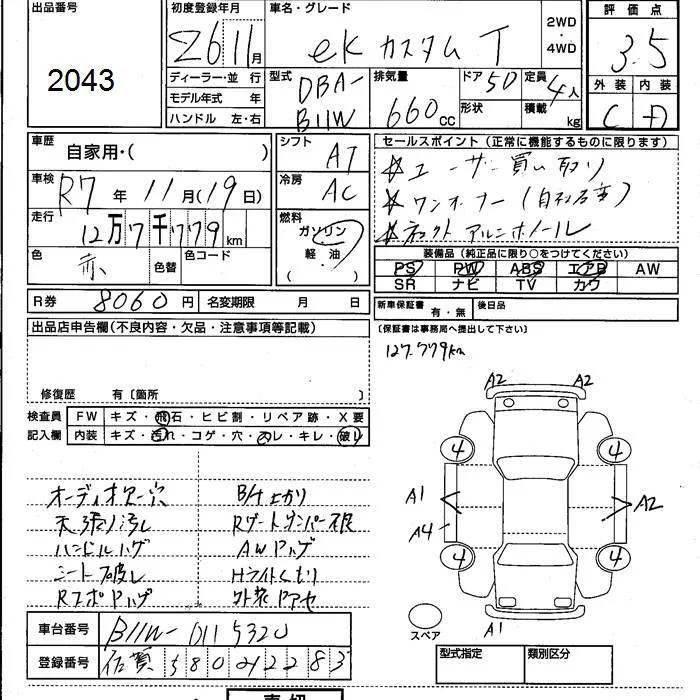 出品番号
2043
初度登録年月
26 11月
車名・グレード
eK カスタム T
2WD
・
4WD
評価点
3.5
ディーラー・並 行
モデル年式 年
ハンドル 左・右
型式
DBA-
B11W
排気量
660 cc
ドア 5D
形状
定員 4人
積載 kg
外装 内装
C D
車歴
自家用・( )
車検
R7年 11月(19日)
走行
12万7千779km
色
赤
色替
色コード
シフト
AT
冷房
AC
燃料
ガソリン
軽油
( )
セールスポイント(正常に機能するものに限ります)
☆ユーザー買い取り
☆ワンオーナー
装備品(純正品に限り○をつけてください)
PS PW ABS エアB AW
SR ナビ TV カワ
R券 8060円
名変期限 月 日
新車保証書
有・無
後日品
(保証書は事務局へ提出して下さい)
出品店申告欄(不良内容・欠品・注意事項等記載)
127.779km
修復歴 有〔箇所 〕
検査員
記入欄
FW キズ・飛石・ヒビ割・リペア跡・X要
内装 キズ・汚れ・コゲ・穴・スレ・キレ・破れ
天張り汚れ
ハンドルハゲ
シート破れ
B/H上がり
AWハゲ
Hライトくもり
外装
A2 A2
4 4
A1 A2
A4
4 4
A1
スペア
車台番号 B11W-0115320
登録番号 佐賀 580
型式指定 類別区分